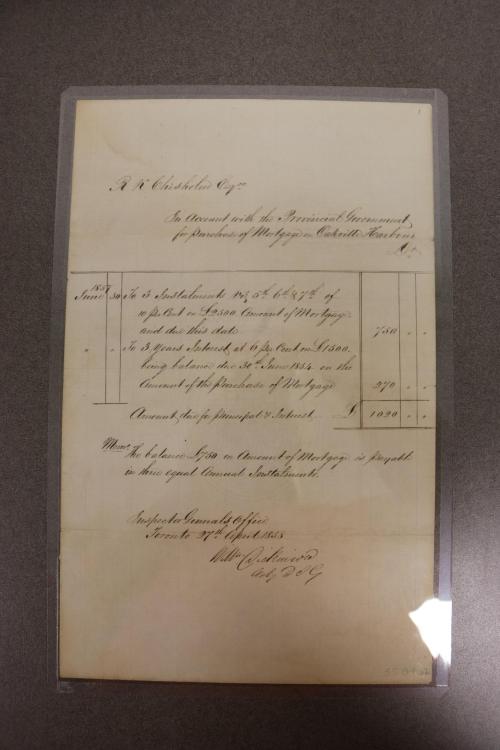 R K Chisholm Esqre
In Account with the Provincial Government
for purchase of Mortgage on Oakville Harbour
1857
June 30 To 3 Instalments No 5th 6th & 7th of
10 pr Cent on £2500 Amount of Mortgage
and due this date 750 " "
" " To 3 Years Interest at 6 pr Cent on £1500
being balance due 30th June 1854 on the
Amount of the purchase of Mortgage 270 " "
Amount due for principal & Interest £ 1020 " "
Memo. The balance £750 on Amount of Mortgage is payable
in three equal Annual Instalments.
Inspector General's Office
Toronto 27th April 1858
Wm Dickinson
Actg D I G